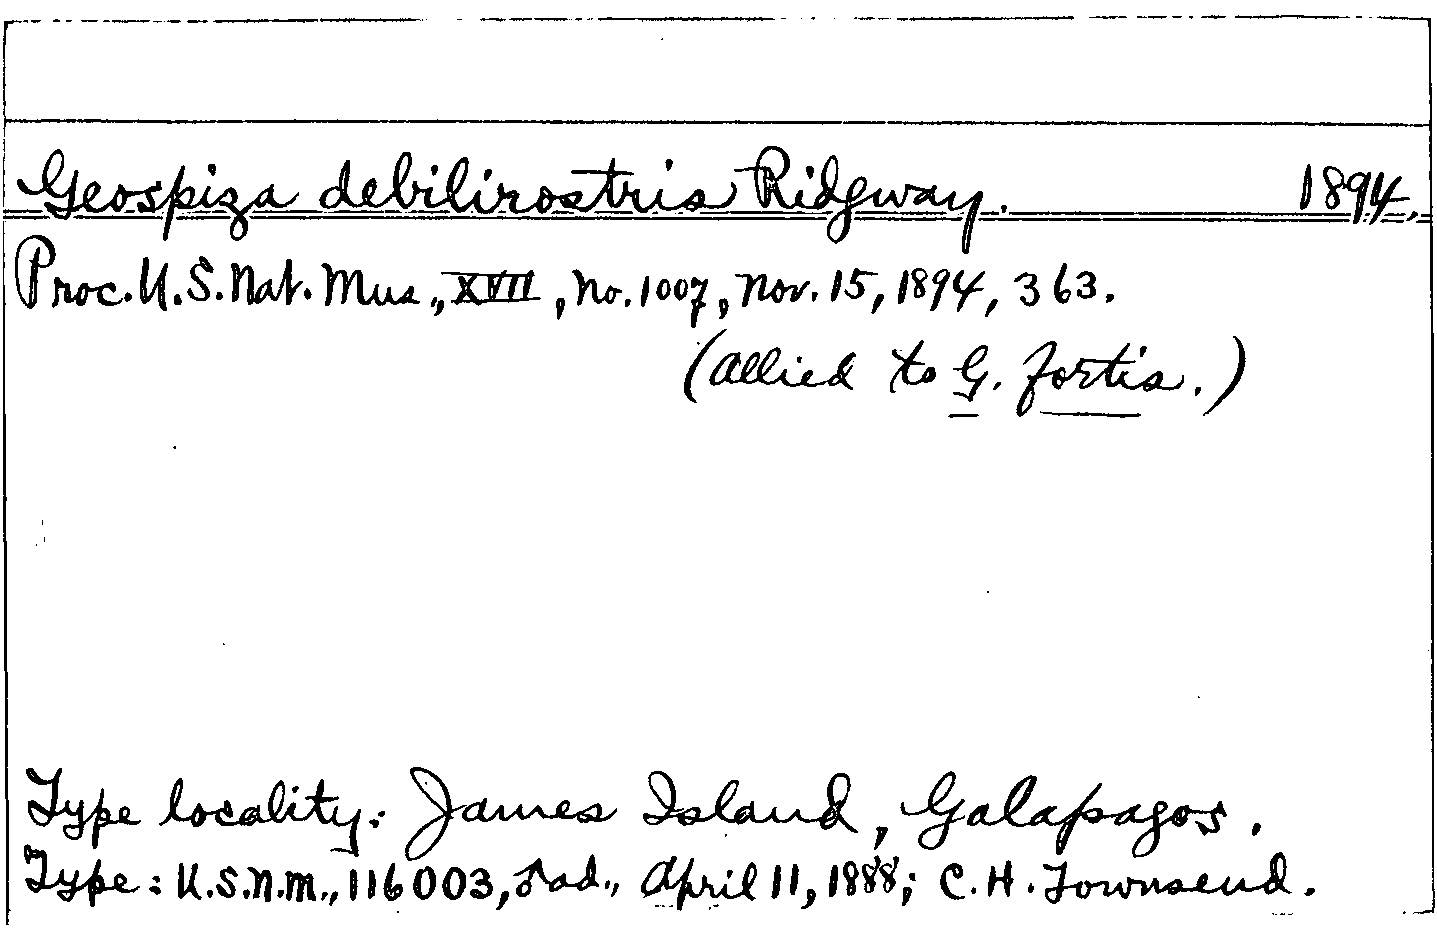 Geospiza debilirostris Ridgway. 1894.
Proc. U.S. Nat. Mus., XVII, No. 1007, Nov. 15, 1894, 363.
(Allied to G. fortis.)
Type locality: James Island, Galapagos.
Type: U.S.N.M., 116003, ♂ ad., April 11, 1888; C.H. Townsend.